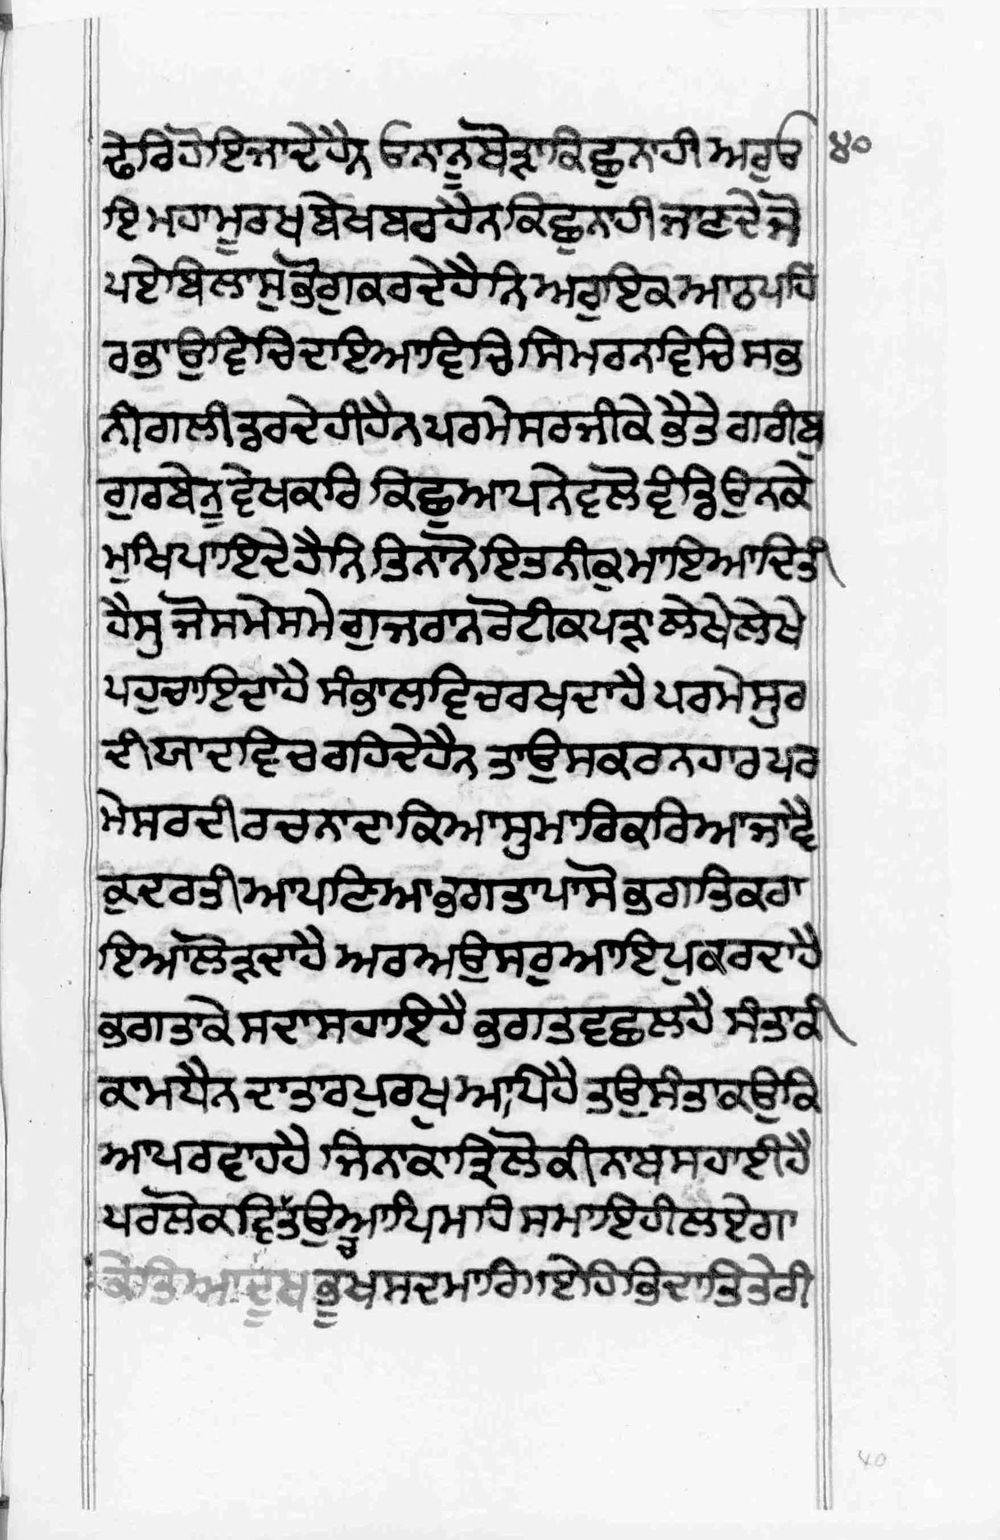 ਢੇਰਿ ਹੋਇ ਜਾਦੇ ਹੈਨ ਓਨਾ ਨੂ ਥੋੜਾ ਕਿਛੁ ਨਾਹੀ ਅਰੁ ਓ ੪੦
ਇ ਮਹਾ ਮੂਰਖ ਬੇਖਬਰ ਹੈਨ ਕਿਛੁ ਨਾਹੀ ਜਾਣਦੇ ਜੋ
ਪਏ ਬਿਲਾਸੁ ਭੋਗੁ ਕਰਦੇ ਹੈਨਿ ਅਰੁ ਇਕ ਆਠ ਪਹਿ
ਰ ਭਾਉ ਵਿਚਿ ਦਾਇਆ ਵਿਚਿ ਸਿਮਰਨ ਵਿਚਿ ਸਭ
ਨੀ ਗਲੀ ਡਰਦੇ ਹੀ ਹੈਨ ਪਰਮੇਸਰ ਜੀ ਕੇ ਭੈ ਤੇ ਗਰੀਬੁ
ਗੁਰਬੇ ਨੂ ਵੇਖ ਕਰਿ ਕਿਛੁ ਆਪਨੇ ਵਲੋ ਵੰਡਿ ਉਨ ਕੇ
ਮੁਖਿ ਪਾਇਦੇ ਹੈਨਿ ਤਿਨਾ ਨੋ ਇਤਨੀਕੁ ਮਾਇਆ ਦਿਤੀ
ਹੈਸੁ ਜੋ ਸਮੇ ਸਮੇ ਗੁਜਰਾਨ ਰੋਟੀ ਕਪੜਾ ਲੇਖੇ ਲੇਖੇ
ਪਹੁਚਾਇਦਾ ਹੈ ਸੰਭਾਲ ਵਿਚ ਰਖਦਾ ਹੈ ਪਰਮੇਸੁਰ
ਦੀ ਯਾਦ ਵਿਚ ਰਹਿਦੇ ਹੈਨ ਤਾ ਉਸ ਕਰਨਹਾਰ ਪਰ
ਮੇਸਰ ਦੀ ਰਚਨਾ ਦਾ ਕਿਆ ਸੁਮਾਰਿ ਕਰਿਆ ਜਾਵੈ
ਕੁਦਰਤੀ ਆਪਣਿਆ ਭਗਤਾ ਪਾਸੋ ਭਗਤਿ ਕਰਾ
ਇਆ ਲੋੜਦਾ ਹੈ ਅਰ ਅਉਸਰੁ ਆਇਪੁ ਕਰਦਾ ਹੈ
ਭਗਤਾ ਕੇ ਸਦਾ ਸਹਾਇ ਹੈ ਭਗਤ ਵਛਲ ਹੈ ਸੰਤਾ ਕੀ
ਕਾਮਧੈਨ ਦਾਤਾਰ ਪੁਰਖੁ ਆਪਿ ਹੈ ਤਉ ਸੰਤਾ ਕਉ ਕਿ
ਆ ਪਰਵਾਹ ਹੈ ਜਿਨਾ ਕਾ ਤ੍ਰਿਲੋਕੀ ਨਾਥ ਸਹਾਈ ਹੈ
ਪਰਲੋਕ ਵਿ ਤਉ ਆਪਿ ਮਾਹਿ ਸਮਾਇ ਹੀ ਲਏਗਾ
ਕੇਤਿਆ ਦੂਖ ਭੂਖ ਸਦ ਮਾਰਿ ਏਹਿ ਭਿ ਦਾਤਿ ਤੇਰੀ
੪੦